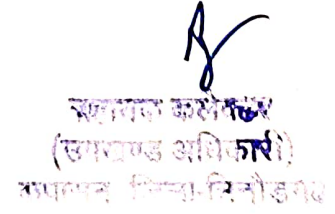 सहायक कलेक्टर
(उपखण्ड अधिकारी)
जिला-चित्तौड़गढ़